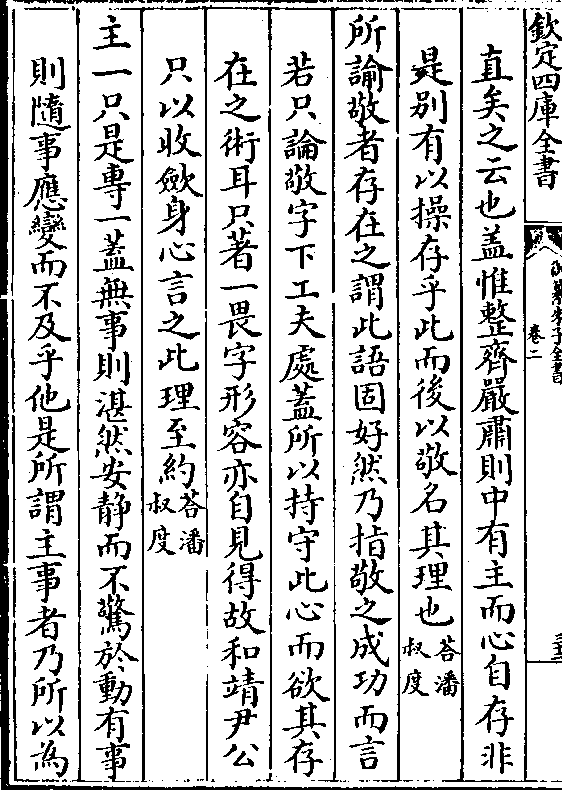 欽定四庫全書
御纂朱子全書
卷二
直矣之云也蓋惟整齊嚴肅則中有主而心自存非
是别有以操存乎此而後以敬名其理也答潘叔度
所論敬者存在之謂此語固好然乃指敬之成功而言
若只論敬字下工夫處蓋所以持守此心而欲其存
在之術耳只著一畏字形容亦自見得故和靖尹公
只以收斂身心言之此理至約答潘叔度
主一只是專一蓋無事則湛然安静而不騖於動有事
則隨事應變而不及乎他是所謂主事者乃所以為